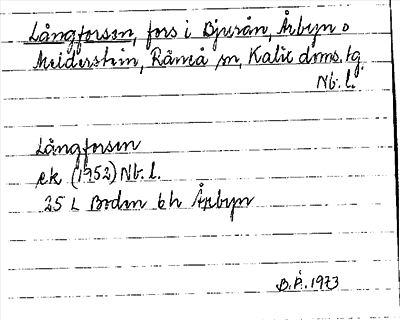 Långforsen, fors i Bjurån, Årbyn o
Meiderstein, Råneå sn, Kalix doms. tg
Nb. l.
Långforsen
ek (1952) Nb. l.
25 L Boden 6h Årbyn
B.P. 1973